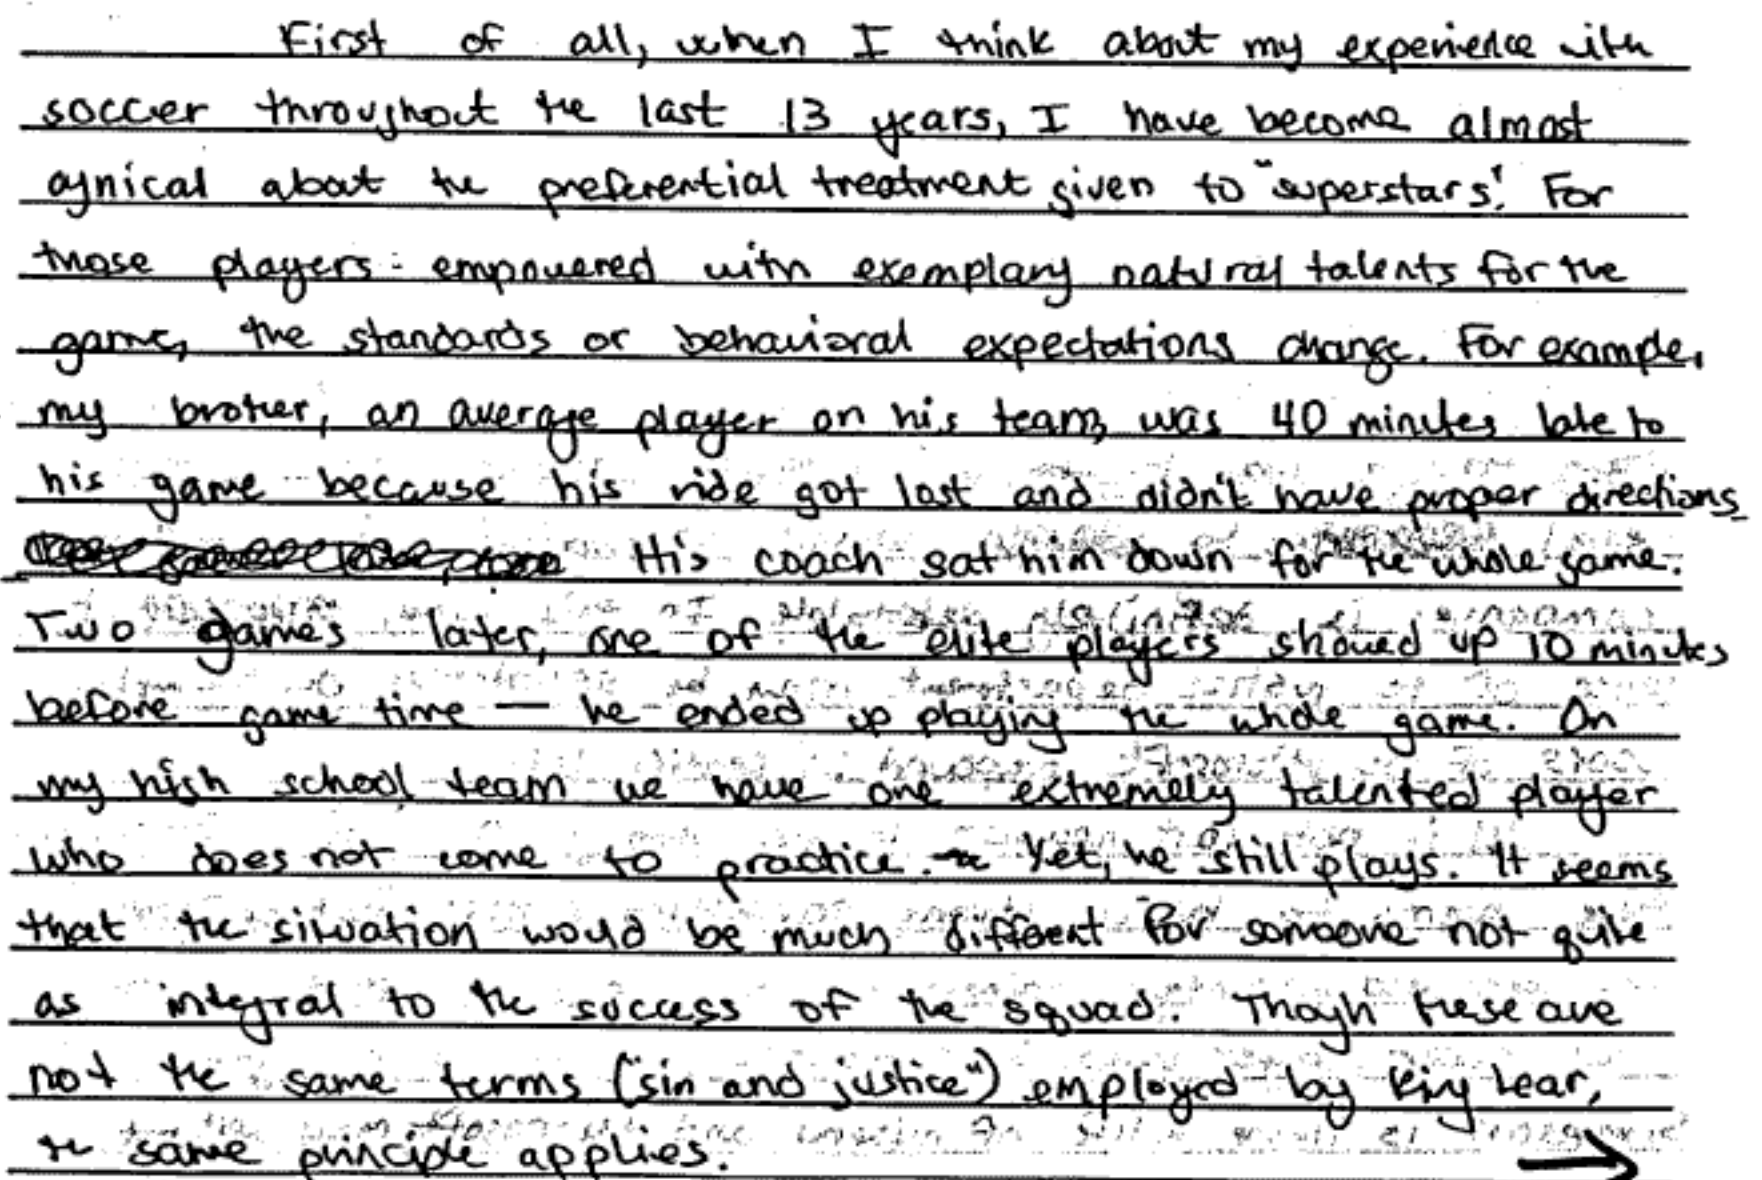 First of all, when I think about my experience with
soccer throughout the last 13 years, I have become almost
cynical about the preferential treatment given to "superstars". For
those players empowered with exemplary natural talents for the
game, the standards or behavioral expectations change. For example,
my brother, an average player on his team, was 40 minutes late to
his game because his ride got lost and didn't have proper directions.
His coach sat him down for the whole game.
Two games later, one of the elite players showed up 10 minutes
before game time — he ended up playing the whole game. On
my high school team we have one extremely talented player
who does not come to practice. Yet, he still plays. It seems
that the situation would be much different for someone not quite
as integral to the success of the squad. Though these are
not the same terms ("sin and justice") employed by King Lear,
the same principle applies. →